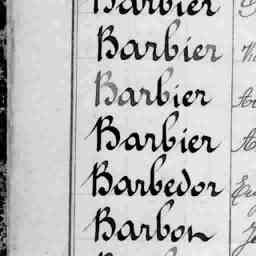 Barbier
Barbier
Barbier
Barbier
Barbedor
Barbon